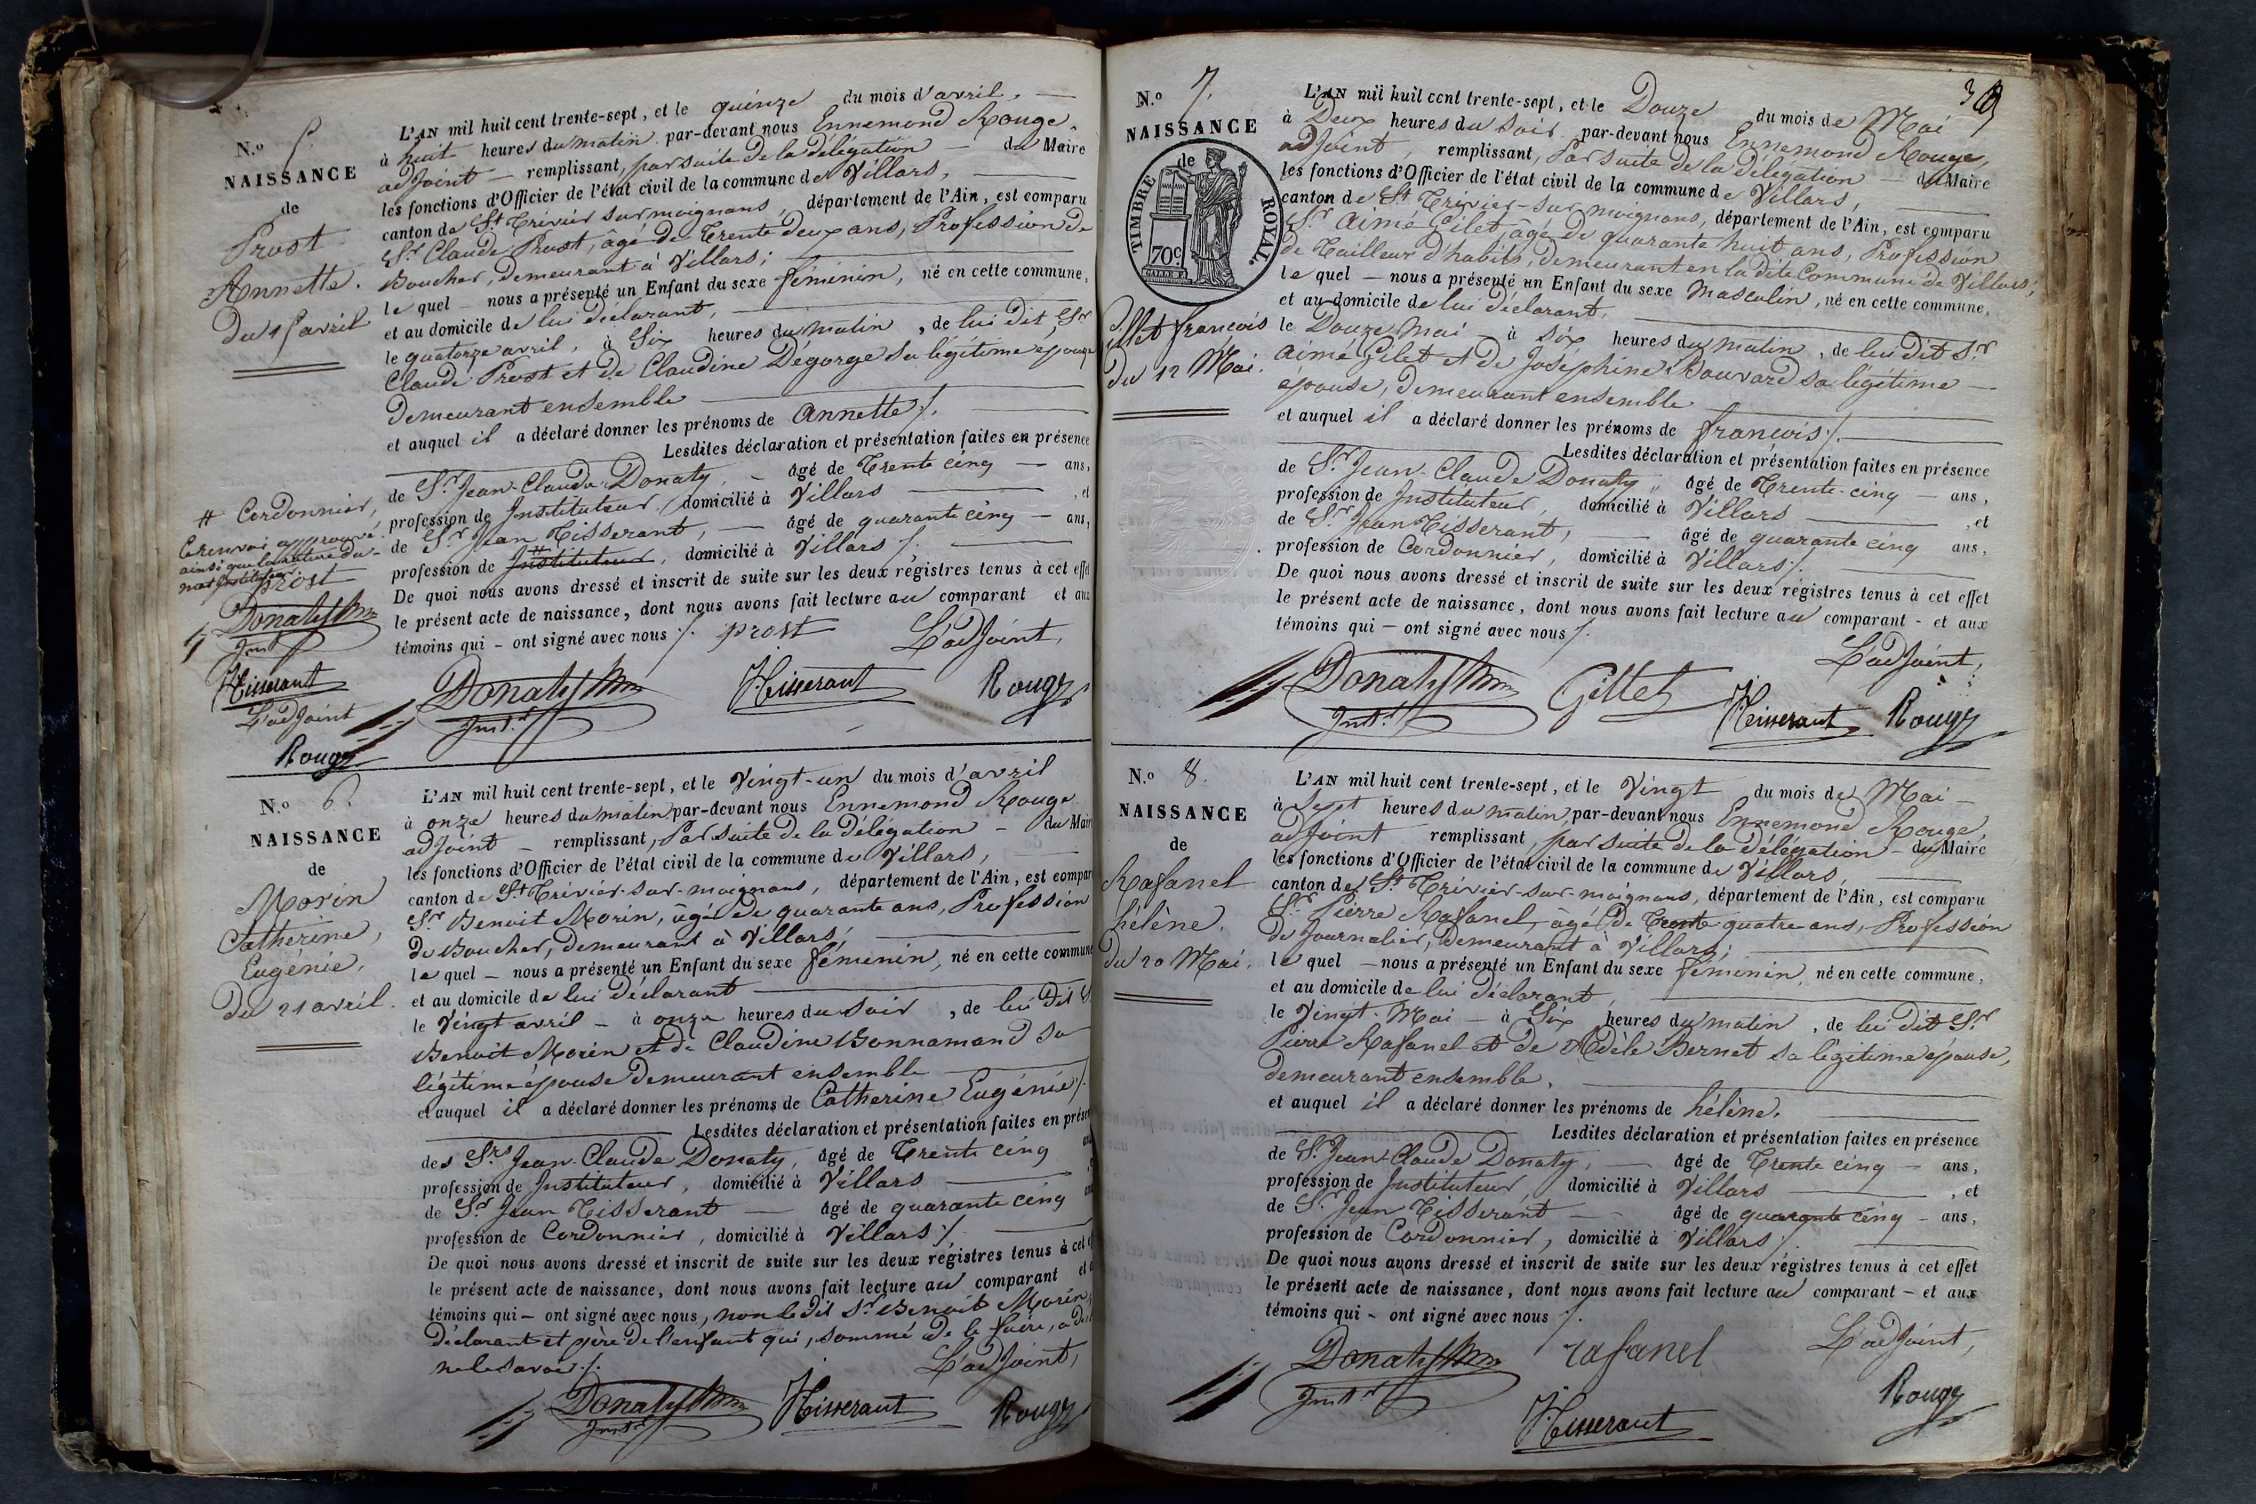 N.o 5.
NAISSANCE
de
Prost
Annette.
Du 15 avril
L'AN mil huit cent trente-sept, et le quinze du mois d'avril.
à huit heures du matin par-devant nous Ennemond Rouge,
adjoint remplissant, par suite de la délégation du Maire
les fonctions d'Officier de l'état civil de la commune de Villars,
canton de St Trivier sur moignans, département de l'Ain, est comparu
Sr Claude Prost, âgé de Trente deux ans, Profession de
Boucher, demeurant à Villars;
lequel nous a présenté un Enfant du sexe féminin, né en cette commune,
et au domicile de lui déclarant,
le quatorze avril, à Six heures du matin, de lui dit Sr
Claude Prost et de Claudine Dégorge sa légitime épouse
demeurant ensemble
et auquel il a déclaré donner les prénoms de Annette /.
Lesdites déclaration et présentation faites en présence
de Sr Jean-Claude Donaty, âgé de Trente cinq ans,
profession de Instituteur, domicilié à Villars, et
de Sr Jean Tisserant, âgé de quarante cinq ans,
profession de # Instituteur, domicilié à Villars /.
De quoi nous avons dressé et inscrit de suite sur les deux régistres tenus à cet effet
le présent acte de naissance, dont nous avons fait lecture au comparant et aux
témoins qui - ont signé avec nous /. prost L'adjoint,
Donaty
Inst.r
J Tisserant
Rouge
# Cordonnier,
Ce renvoi approuvé
ainsi que la rature du
mot Instituteur.
prost
Donaty
Inst
J Tisserant
L'adjoint
Rouge
N.o 6.
NAISSANCE
de
Morin
Catherine,
Eugénie.
Du 21 avril.
L'AN mil huit cent trente-sept, et le Vingt-un du mois d'avril
à onze heures du matin par-devant nous Ennemond Rouge
adjoint remplissant, Par suite de la délégation du Mair
les fonctions d'Officier de l'état civil de la commune de Villars,
canton de St Trivier-sur-moignans, département de l'Ain, est compar
Sr Benoit Morin, âgé de quarante ans, Profession
de Boucher, demeurant à Villars;
lequel nous a présenté un Enfant du sexe féminin, né en cette commune
et au domicile de lui déclarant
le Vingt avril à onze heures du soir, de lui dit S
Benoit Morin et de Claudine Bonnamand sa
légitime épouse demeurant ensemble
et auquel il a déclaré donner les prénoms de Catherine Eugénie /.
Lesdites déclaration et présentation faites en prése
des Srs Jean-Claude Donaty, âgé de Trente cinq
profession de Instituteur, domicilié à Villars
de Sr Jean Tisserant âgé de quarante cinq
profession de Cordonnier, domicilié à Villars /.
De quoi nous avons dressé et inscrit de suite sur les deux régistres tenus à cet
le présent acte de naissance, dont nous avons fait lecture au comparant et
témoins qui - ont signé avec nous, non le dit Sr Benoit Morin,
déclarant et père de l'enfant qui, sommé de le faire, a dit
ne le savoir /. L'adjoint,
Donaty
Inst.r
J Tisserant
Rouge
N.o 7.
NAISSANCE
de
TIMBRE ROYAL
70c
Gillet françois
du 12 Mai.
L'AN mil huit cent trente-sept, et le Douze du mois de Mai
à Deux heures du soir par-devant nous Ennemond Rouge,
adjoint, remplissant, Par suite de la délégation du Maire
les fonctions d'Officier de l'état civil de la commune de Villars,
canton de St Trivier-sur-moignans, département de l'Ain, est comparu
Sr Aimé Gilet, âgé de quarante huit ans, Profession
de Tailleur d'habits, demeurant en la dite Commune de Villars;
lequel nous a présenté un Enfant du sexe Masculin, né en cette commune,
et au domicile de lui déclarant,
le Douze Mai à six heures du matin, de lui dit Sr
Aimé Gilet et de Joséphine Bouvard sa légitime
épouse, demeurant ensemble
et auquel il a déclaré donner les prénoms de françois /.
Lesdites déclaration et présentation faites en présence
de Sr Jean-Claude Donaty âgé de Trente-cinq ans,
profession de Instituteur, domicilié à Villars, et
de Sr Jean Tisserant, âgé de quarante cinq ans,
profession de Cordonnier, domicilié à Villars /.
De quoi nous avons dressé et inscrit de suite sur les deux régistres tenus à cet effet
le présent acte de naissance, dont nous avons fait lecture au comparant - et aux
témoins qui - ont signé avec nous /.
L'adjoint,
Donaty
Inst.r
Gillet
J Tisserant
Rouge
N.o 8.
NAISSANCE
de
Rafanel
hélène.
Du 20 Mai.
L'AN mil huit cent trente-sept, et le Vingt du mois de Mai
à Sept heures du matin par-devant nous Ennemond Rouge,
adjoint remplissant, par suite de la délégation du Maire
les fonctions d'Officier de l'état civil de la commune de Villars,
canton de St Trivier-sur-moignans, département de l'Ain, est comparu
Sr Pierre Rafanel, âgé de Trente quatre ans, Profession
de Journalier, demeurant à Villars;
lequel nous a présenté un Enfant du sexe féminin, né en cette commune,
et au domicile de lui déclarant,
le Vingt-Mai à Six heures du matin, de lui dit Sr
Pierre Rafanel et de Adèle Bernet sa légitime épouse,
demeurant ensemble,
et auquel il a déclaré donner les prénoms de hélène.
Lesdites déclaration et présentation faites en présence
de Sr Jean-Claude Donaty, âgé de Trente cinq ans,
profession de Instituteur, domicilié à Villars, et
de Sr Jean Tisserant âgé de quarante cinq ans,
profession de Cordonnier, domicilié à Villars /.
De quoi nous avons dressé et inscrit de suite sur les deux régistres tenus à cet effet
le présent acte de naissance, dont nous avons fait lecture au comparant - et aux
témoins qui - ont signé avec nous /.
L'adjoint,
Donaty
Inst.r
rafanel
J Tisserant
Rouge